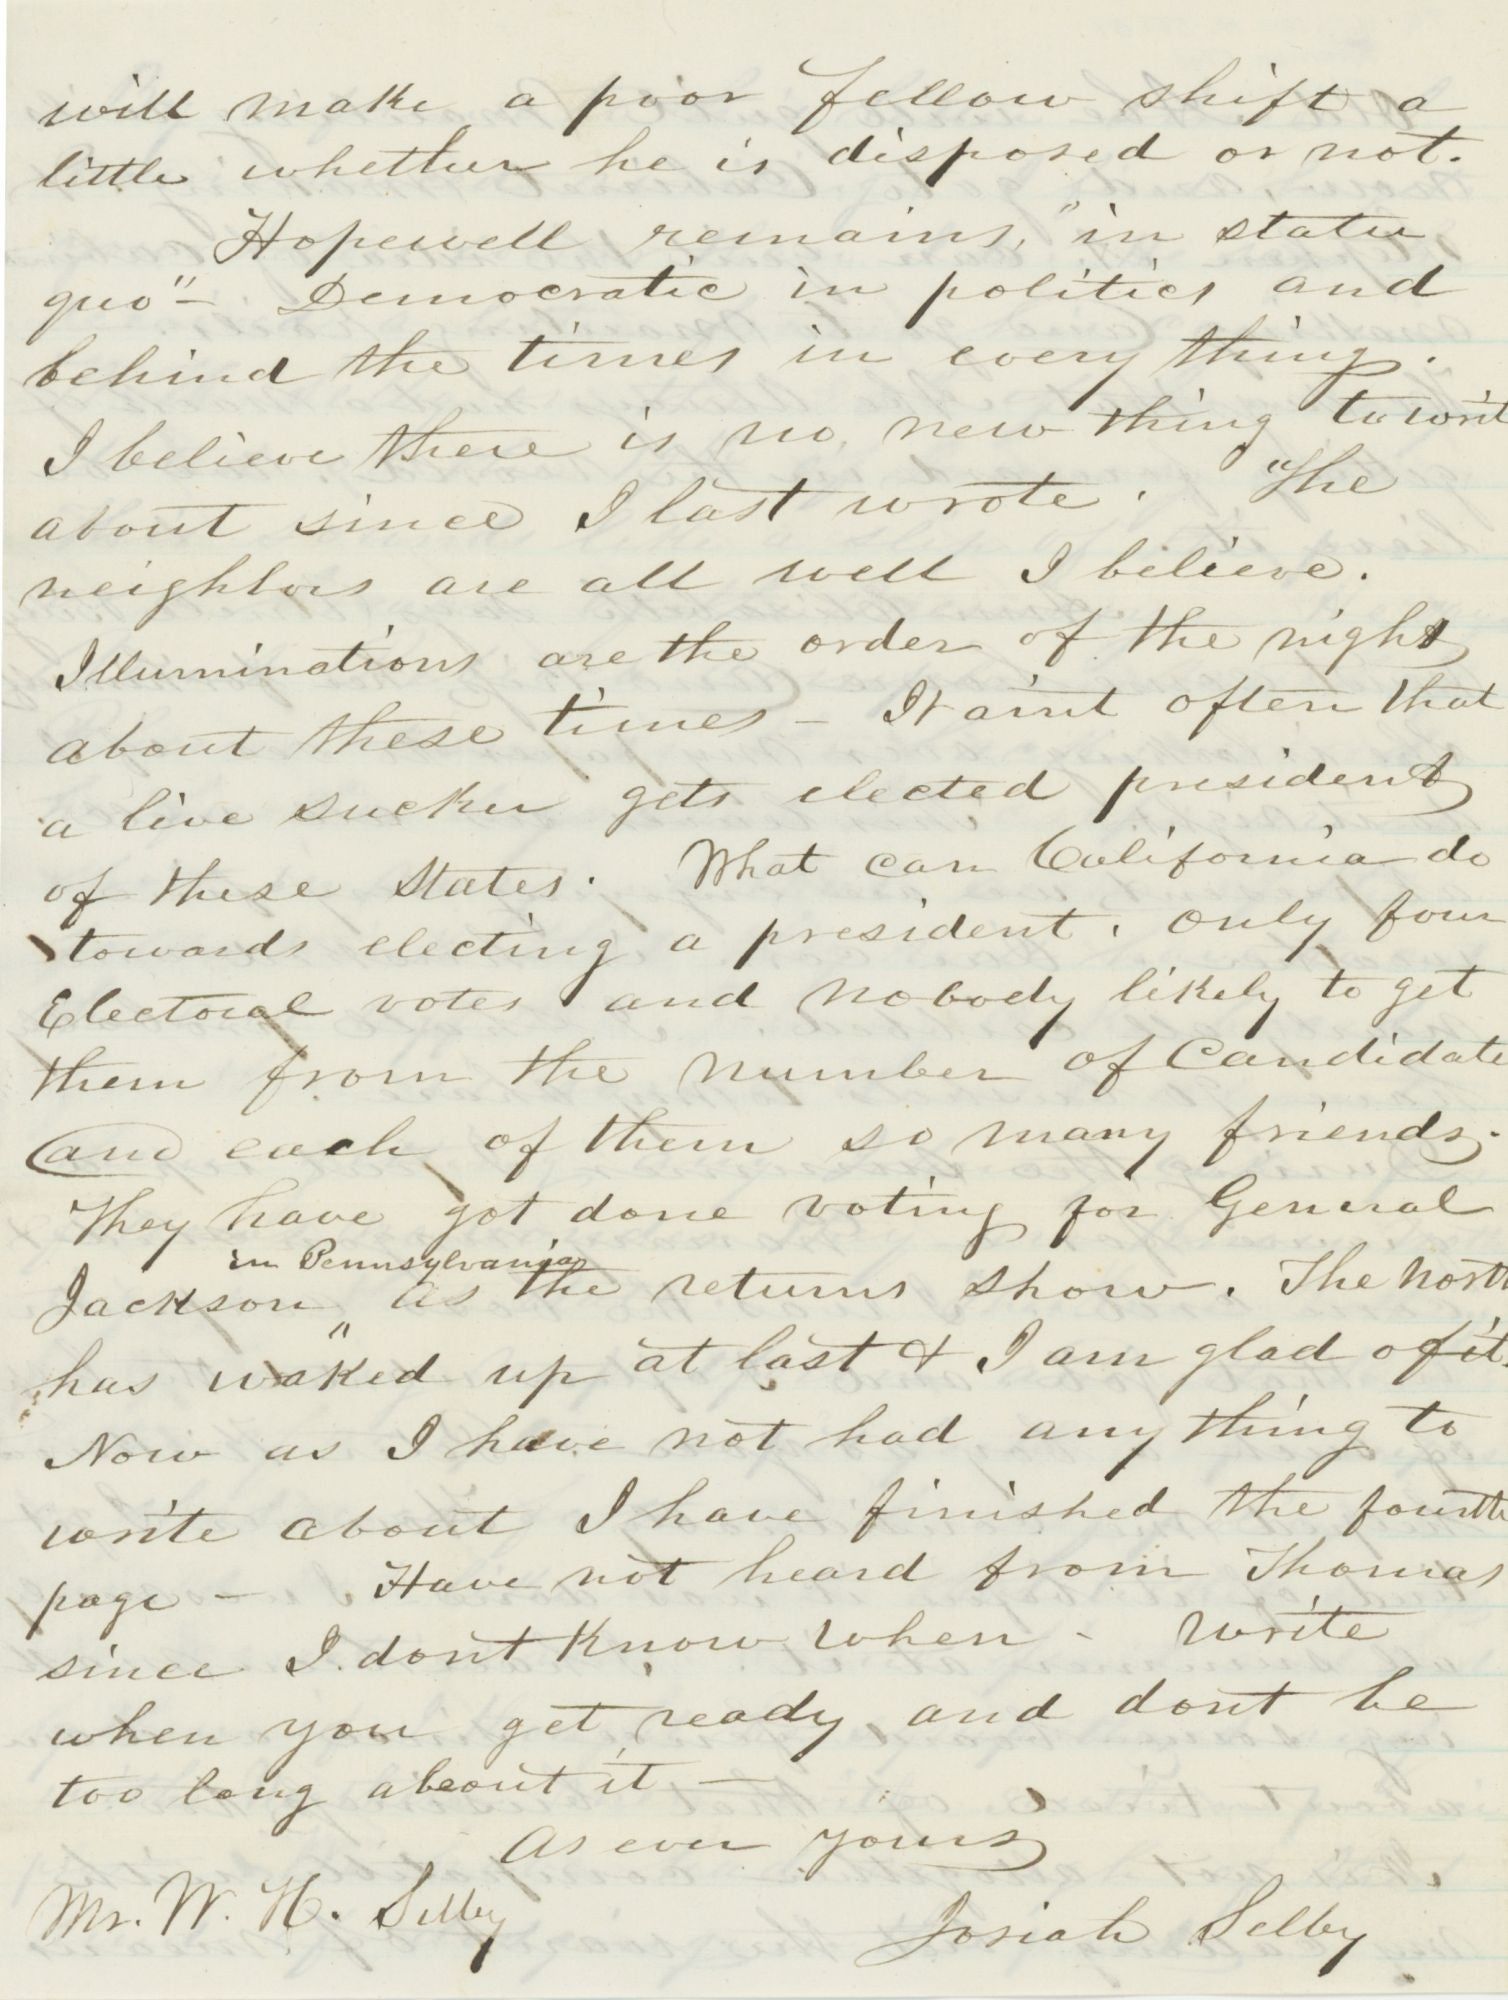 will make a poor fellow shift a
little whether he is disposed or not.
Hopewell remains, "in statu
quo" – Democratic in politics and
behind the times in every thing.
I believe there is no new thing to writ
about since I last wrote. The
neighbors are all well I believe.
Illuminations are the order of the night
about these times – It aint often that
a live sucker gets elected president
of these States. What can California do
towards electing a president, only four
Electoral votes and nobody likely to get
them from the number of Candidate
and each of them so many friends.
They have got done voting for General
in Pennsylvania
Jackson " as the returns show. The North
has waked up at last & I am glad of it.
Now as I have not had any thing to
write about I have finished the fourth
page – Have not heard from Thomas
since I dont Know when – write
when you get ready and dont be
too long about it –
As ever yours
Mr. W. H. Selby
Josiah Selby